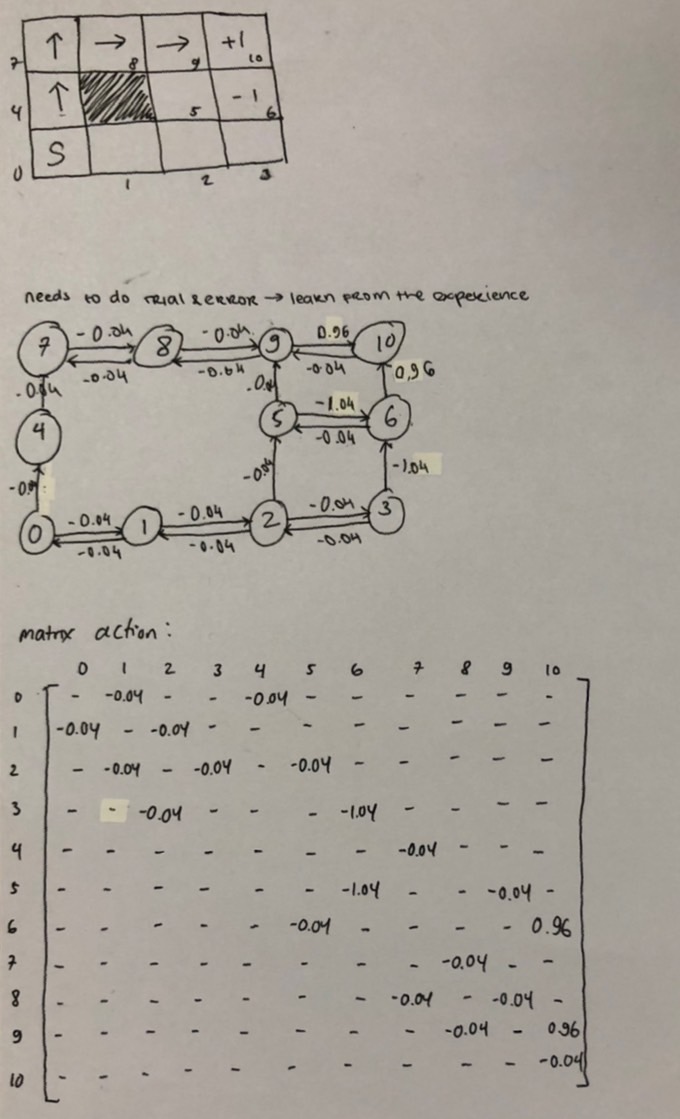 ↑ → → +1
7 8 9 10
↑ -1
4 5 6
S
0 1 2 3
needs to do trial & error → learn from the experience
-0.04 -0.04 0.96
7 8 9 10
-0.04 -0.04 -0.04
-0.04 0,96
-1.04
4 5 6
-0.04
-0.04 -1.04
-0.04 -0.04 -0.04
0 1 2 3
-0.04 -0.04 -0.04
matrix action:
0 1 2 3 4 5 6 7 8 9 10
0 - -0.04 - - -0.04 - - - - - -
1 -0.04 - -0.04 - - - - - - - -
2 - -0.04 - -0.04 - -0.04 - - - - -
3 - - -0.04 - - - -1.04 - - - -
4 - - - - - - - -0.04 - - -
5 - - - - - - -1.04 - - -0.04 -
6 - - - - - -0.04 - - - - 0.96
7 - - - - - - - - -0.04 - -
8 - - - - - - - -0.04 - -0.04 -
9 - - - - - - - - -0.04 - 0.96
10 - - - - - - - - - - -0.04